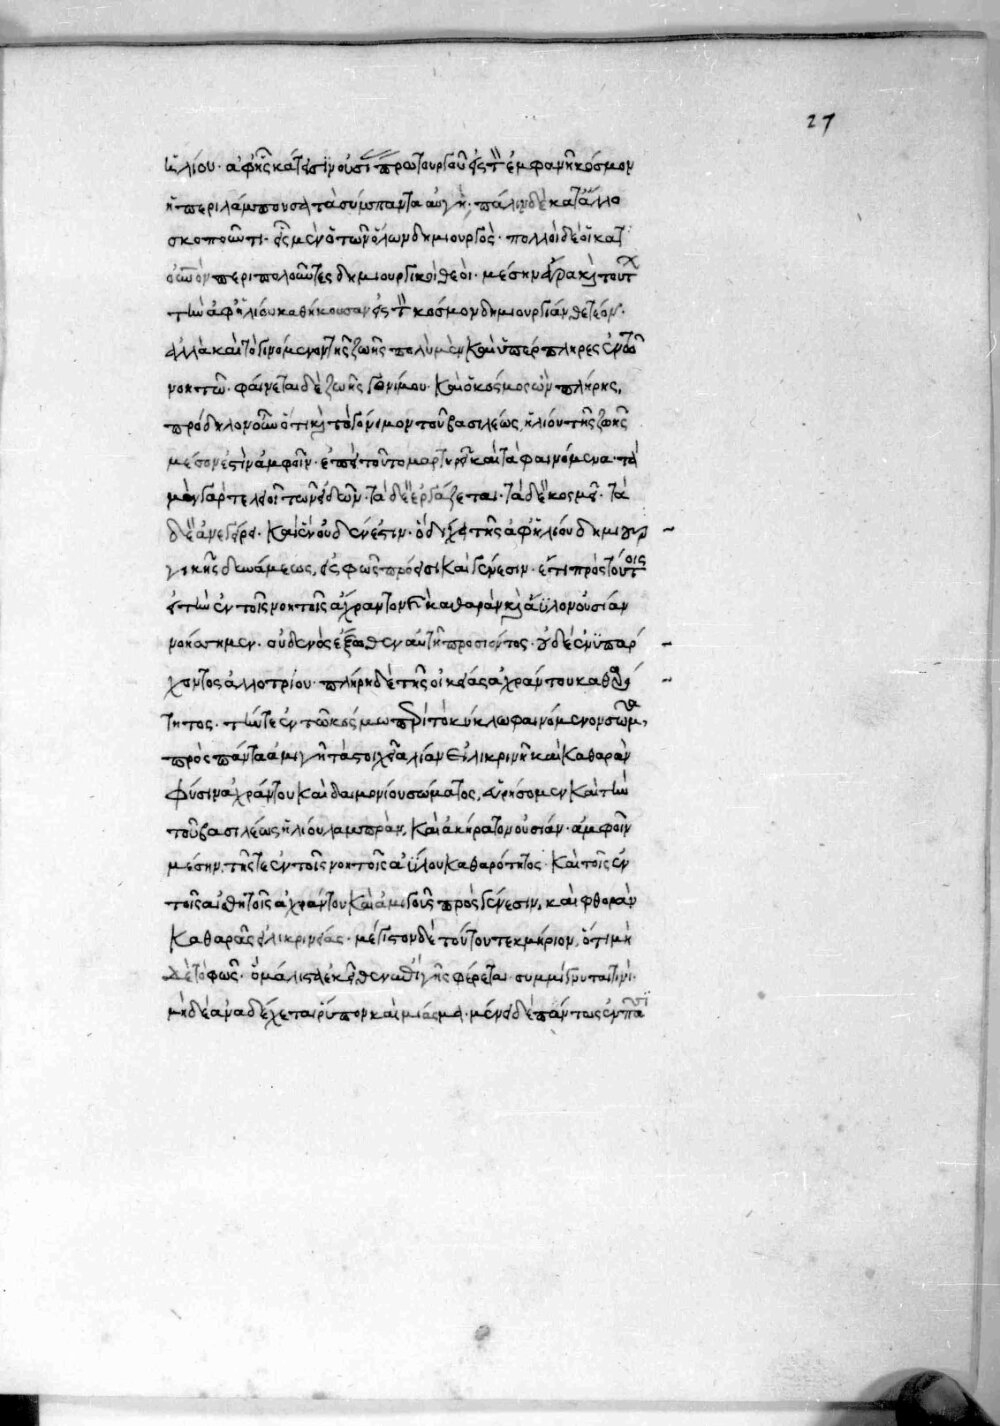 27
ἡλίου· ἀφ' ἧς κάτεισιν οὐσία πρωτουργοῦ εἰς τὸν ἐμφανῆ κόσμον
ἡ περιλάμπουσα τὰ σύμπαντα αὐγή· πάλιν δὲ κατ' ἄλλο
σκοποῦντι· εἷς μὲν ὁ τῶν ὅλων δημιουργός· πολλοὶ δὲ οἱ κατ'
οὐρανὸν περιπολοῦντες δημιουργικοὶ θεοί· μέσην ἄρα καὶ τούτων
τὴν ἀφ' ἡλίου καθήκουσαν εἰς τὸν κόσμον δημιουργίαν θετέον·
ἀλλὰ καὶ τὸ γινόμενον τῆς ζωῆς πολὺ μὲν καὶ ὑπέρπληρες ἐν τῷ
νοητῷ· φαίνεται δὲ ζωῆς γονίμου· καὶ ὁ κόσμος ὢν πλήρης,
πρόδηλον οὖν ὅτι καὶ τὸ γόνιμον τοῦ βασιλέως ἡλίου τῆς ζωῆς
μέσον ἐστὶν ἀμφοῖν· ἐπεὶ τούτῳ μαρτυρεῖ καὶ τὰ φαινόμενα· τὰ
μὲν γὰρ τελειοῖ τῶν εἰδῶν· τὰ δὲ ἐργάζεται· τὰ δὲ κοσμεῖ· τὰ
δὲ ἀνεγείρει· καὶ ἓν οὐδέν ἐστιν· ὃ δίχα τῆς ἀφ' ἡλίου δημιουρ
γικῆς δυνάμεως, εἰς φῶς πρόεισι καὶ γένεσιν· ἔτι πρὸς τούτοις
εἰ τὴν ἐν τοῖς νοητοῖς ἄχραντον καὶ καθαρὰν καὶ ἄϋλον οὐσίαν
νοήσαιμεν· οὐδενὸς ἔξωθεν αὐτῇ προσιόντος· οὐδὲ ἐνυπάρ
χοντος ἀλλοτρίου· πλήρη δὲ τῆς οἰκείας ἀχράντου καθαρό
τητος· τήν τε ἐν τῷ κόσμῳ περὶ τὸ κύκλῳ φαινόμενον σῶμα,
πρὸς πάντα ἀμιγῆ τὰ στοιχεῖα λίαν εἰλικρινῆ καὶ καθαρὰν
φύσιν ἀχράντου καὶ δαιμονίου σώματος, εὑρήσομεν καὶ τὴν
τοῦ βασιλέως ἡλίου λαμπρὰν, καὶ ἀκήρατον οὐσίαν· ἀμφοῖν
μέσην, τῆς τε ἐν τοῖς νοητοῖς ἀΰλου καθαρότητος· καὶ τοῖς ἐν
τοῖς αἰσθητοῖς ἀχράντου καὶ ἀμιγοῦς πρὸς γένεσιν, καὶ φθορὰν
καθαρᾶς εἰλικρινείας· μέγιστον δὲ τούτου τεκμήριον, ὅτι μη
δὲ τὸ φῶς· ὃ μάλιστα ἐκεῖθεν ἐπὶ γῆς φέρεται· συμμίγνυταί τινι·
μηδὲ ἀναδέχεται ῥύπον καὶ μίασμα· μένει δὲ πάντως ἐν πᾶσι